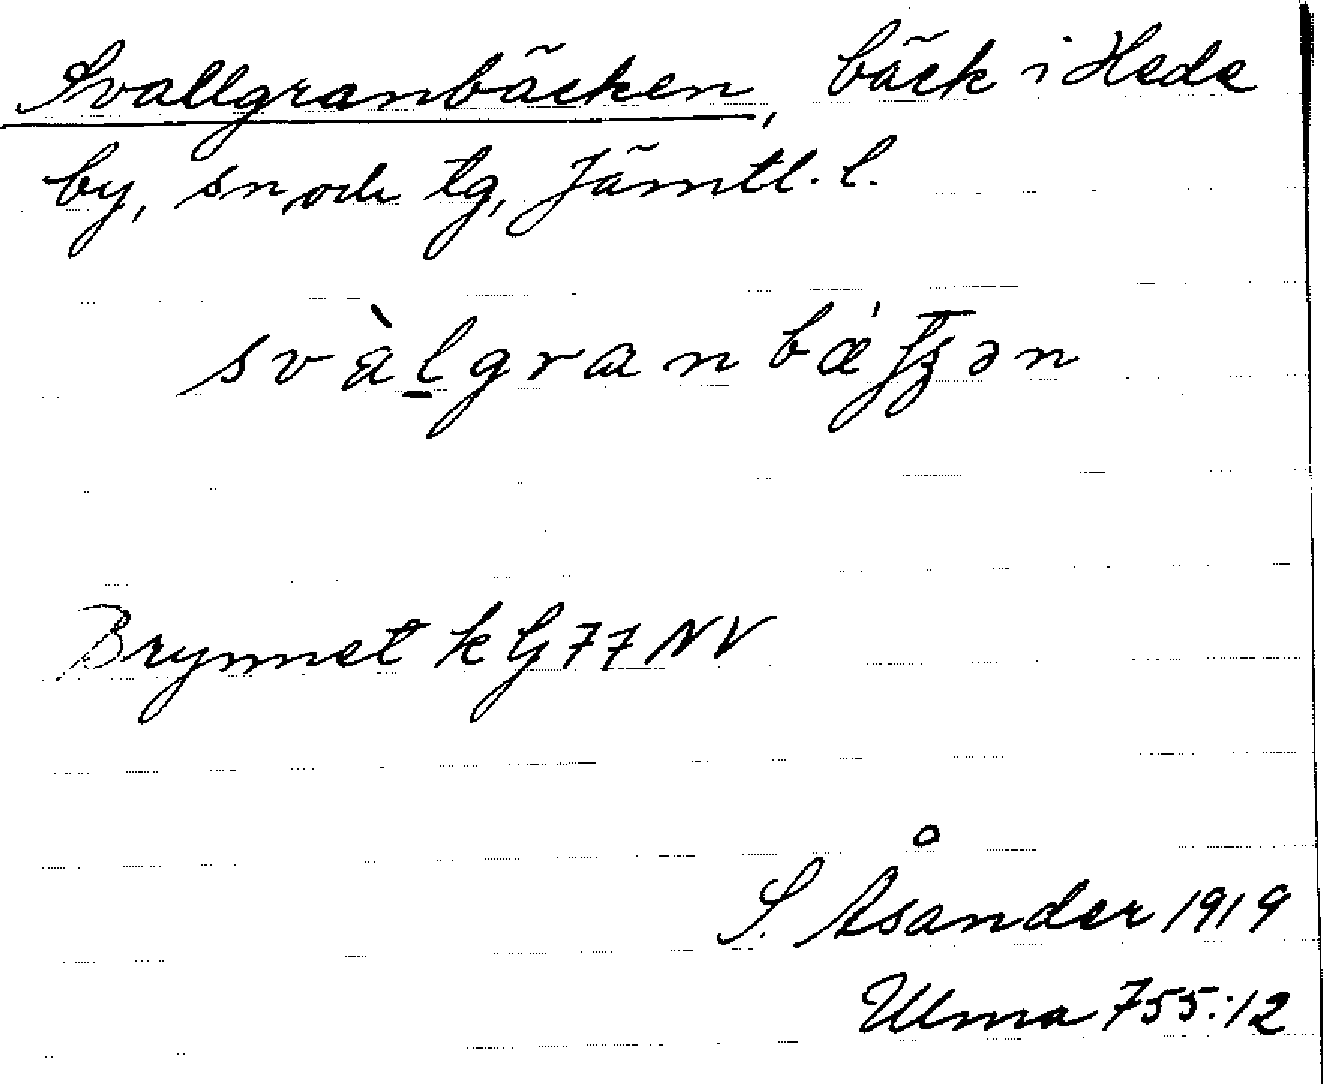 Svallgranbäcken, bäck i Hede
by, sn och tg, Jämtl. l.
svàl̠granbǽʃʒən
Brynnet k G 77 NV
S. Åsander 1919
Ulma 755:12